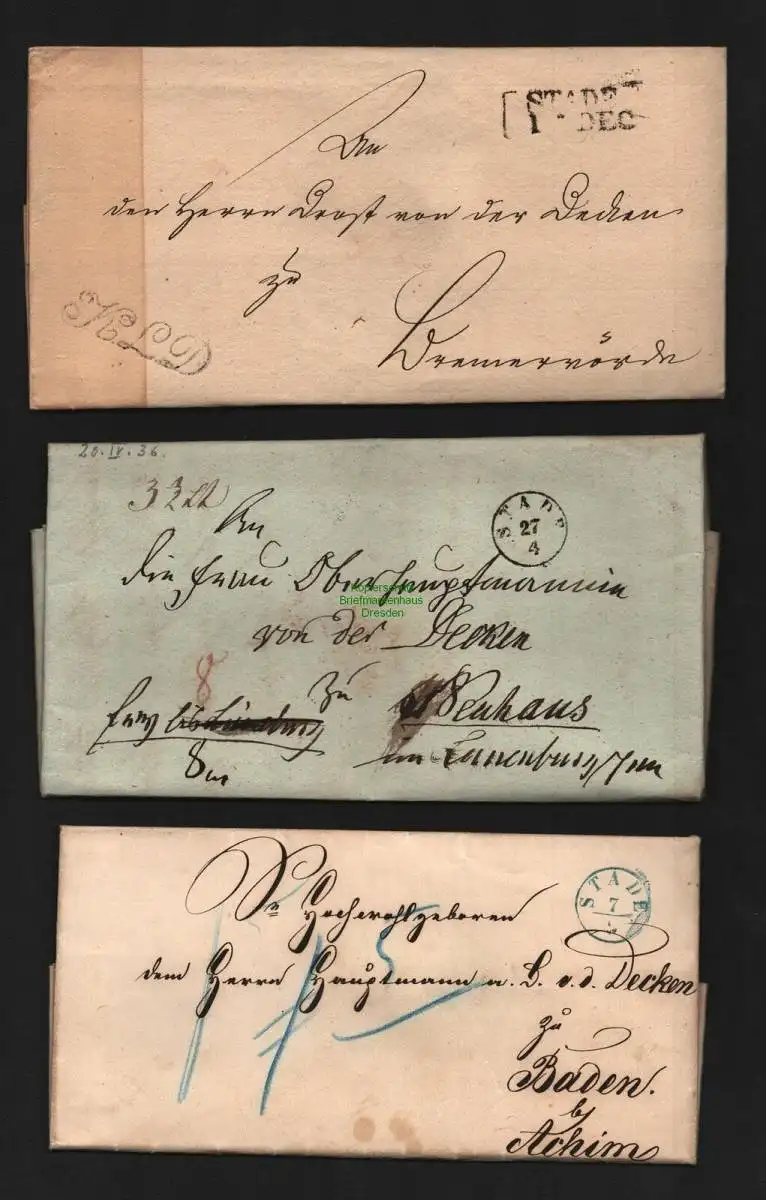 STADE
1 - DEC
An
den Herrn Drost von der Decken
zu
Bremervörde
KLD
20. IV. 36.
An
STADE
27
4
die Frau Oberhauptmannin
Briefmarkenhaus
Dresden
von der Decken
8
zu
Neuhaus
frey
im Lünenburg
8
Sr Hochwohlgeboren
STADE
7
dem Herrn Hauptmann a. D. v. d. Decken
5
zu
Baden.
by
Achim